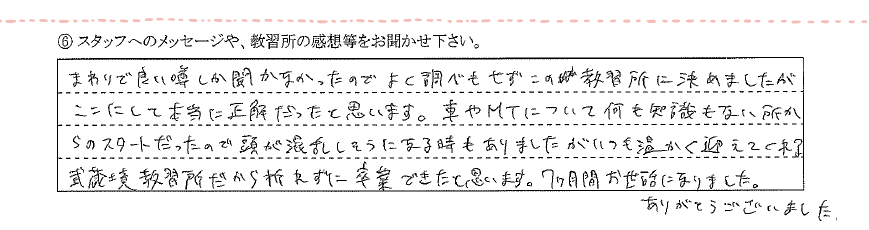 ⑥ スタッフへのメッセージや、教習所の感想等をお聞かせ下さい。
まわりで良い噂しか聞かなかったのでよく調べもせずこの教習所に決めましたが
ここにして本当に正解だったと思います。車やMTについて何も知識もない所か
らのスタートだったので頭が混乱しそうになる時もありましたがいつも温かく迎えてくれる
武蔵境教習所だから折れずに卒業できたと思います。7ヶ月間お世話になりました。
ありがとうございました。